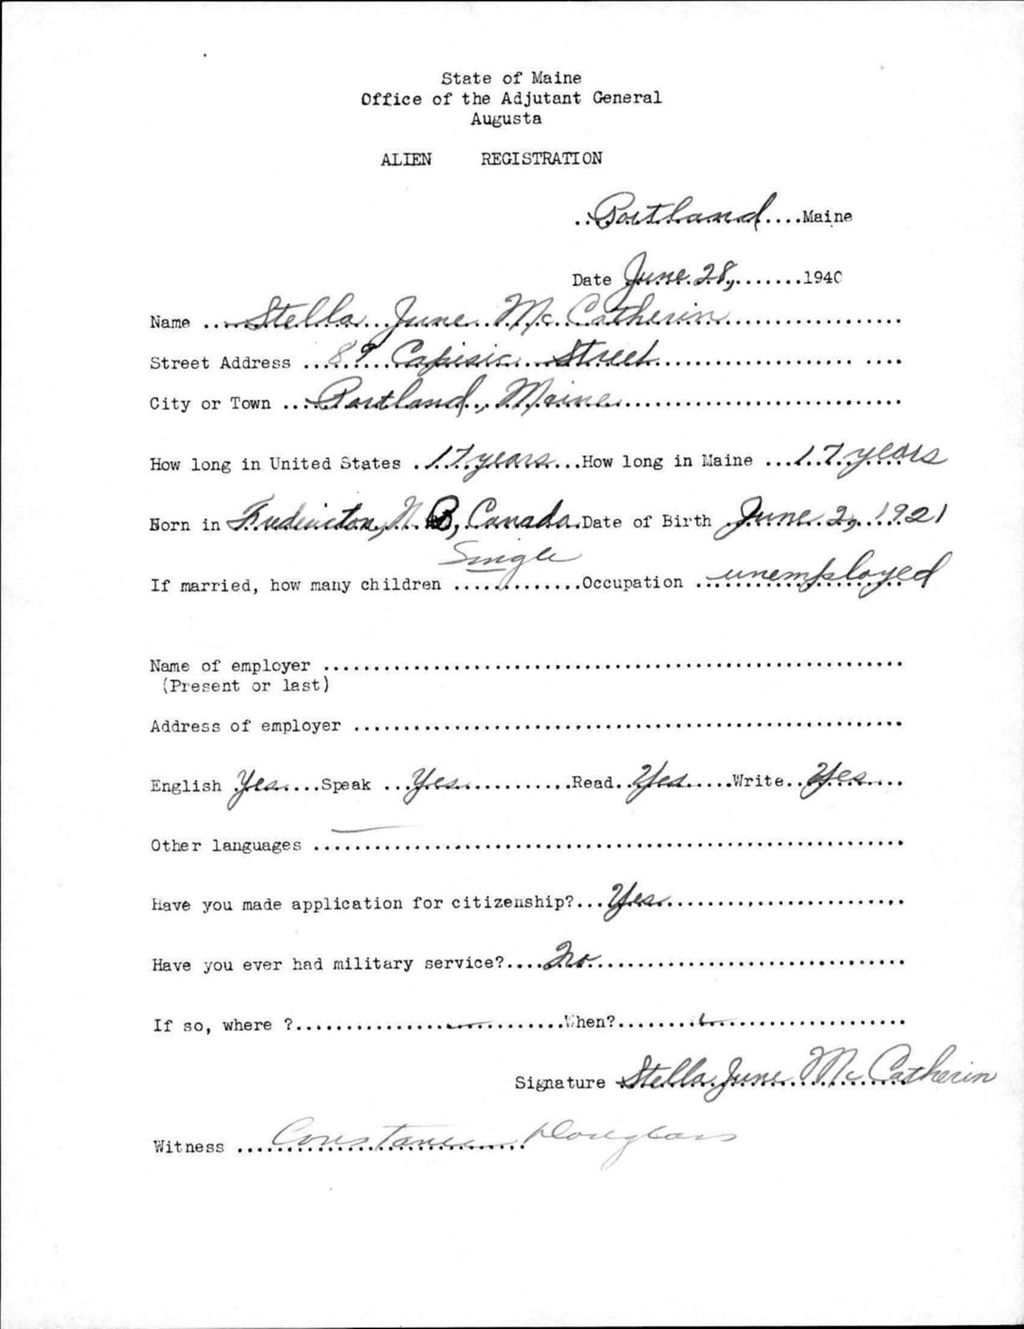 State of Maine
Office of the Adjutant General
Augusta
ALIEN REGISTRATION
..Portland....Maine
Date June 28,........1940
Name ....Stella June Mc Catherin..................
Street Address ...89 Capisic Street........................
City or Town ...Portland, Maine................................
How long in United States .17 years...How long in Maine ...17 years
Born in Fredericton, N. B., Canada.Date of Birth .June 2, 1921
Single
If married, how many children ..............Occupation ..unemployed
Name of employer ................................................................
(Present or last)
Address of employer ............................................................
English Yes....Speak ...Yes............Read..Yes.....Write..Yes....
Other languages ................................................................
Have you made application for citizenship?...Yes...........................
Have you ever had military service?....No..................................
If so, where ?..............................When?..............................
Signature Stella June Mc Catherin
Witness ....Constance Douglass